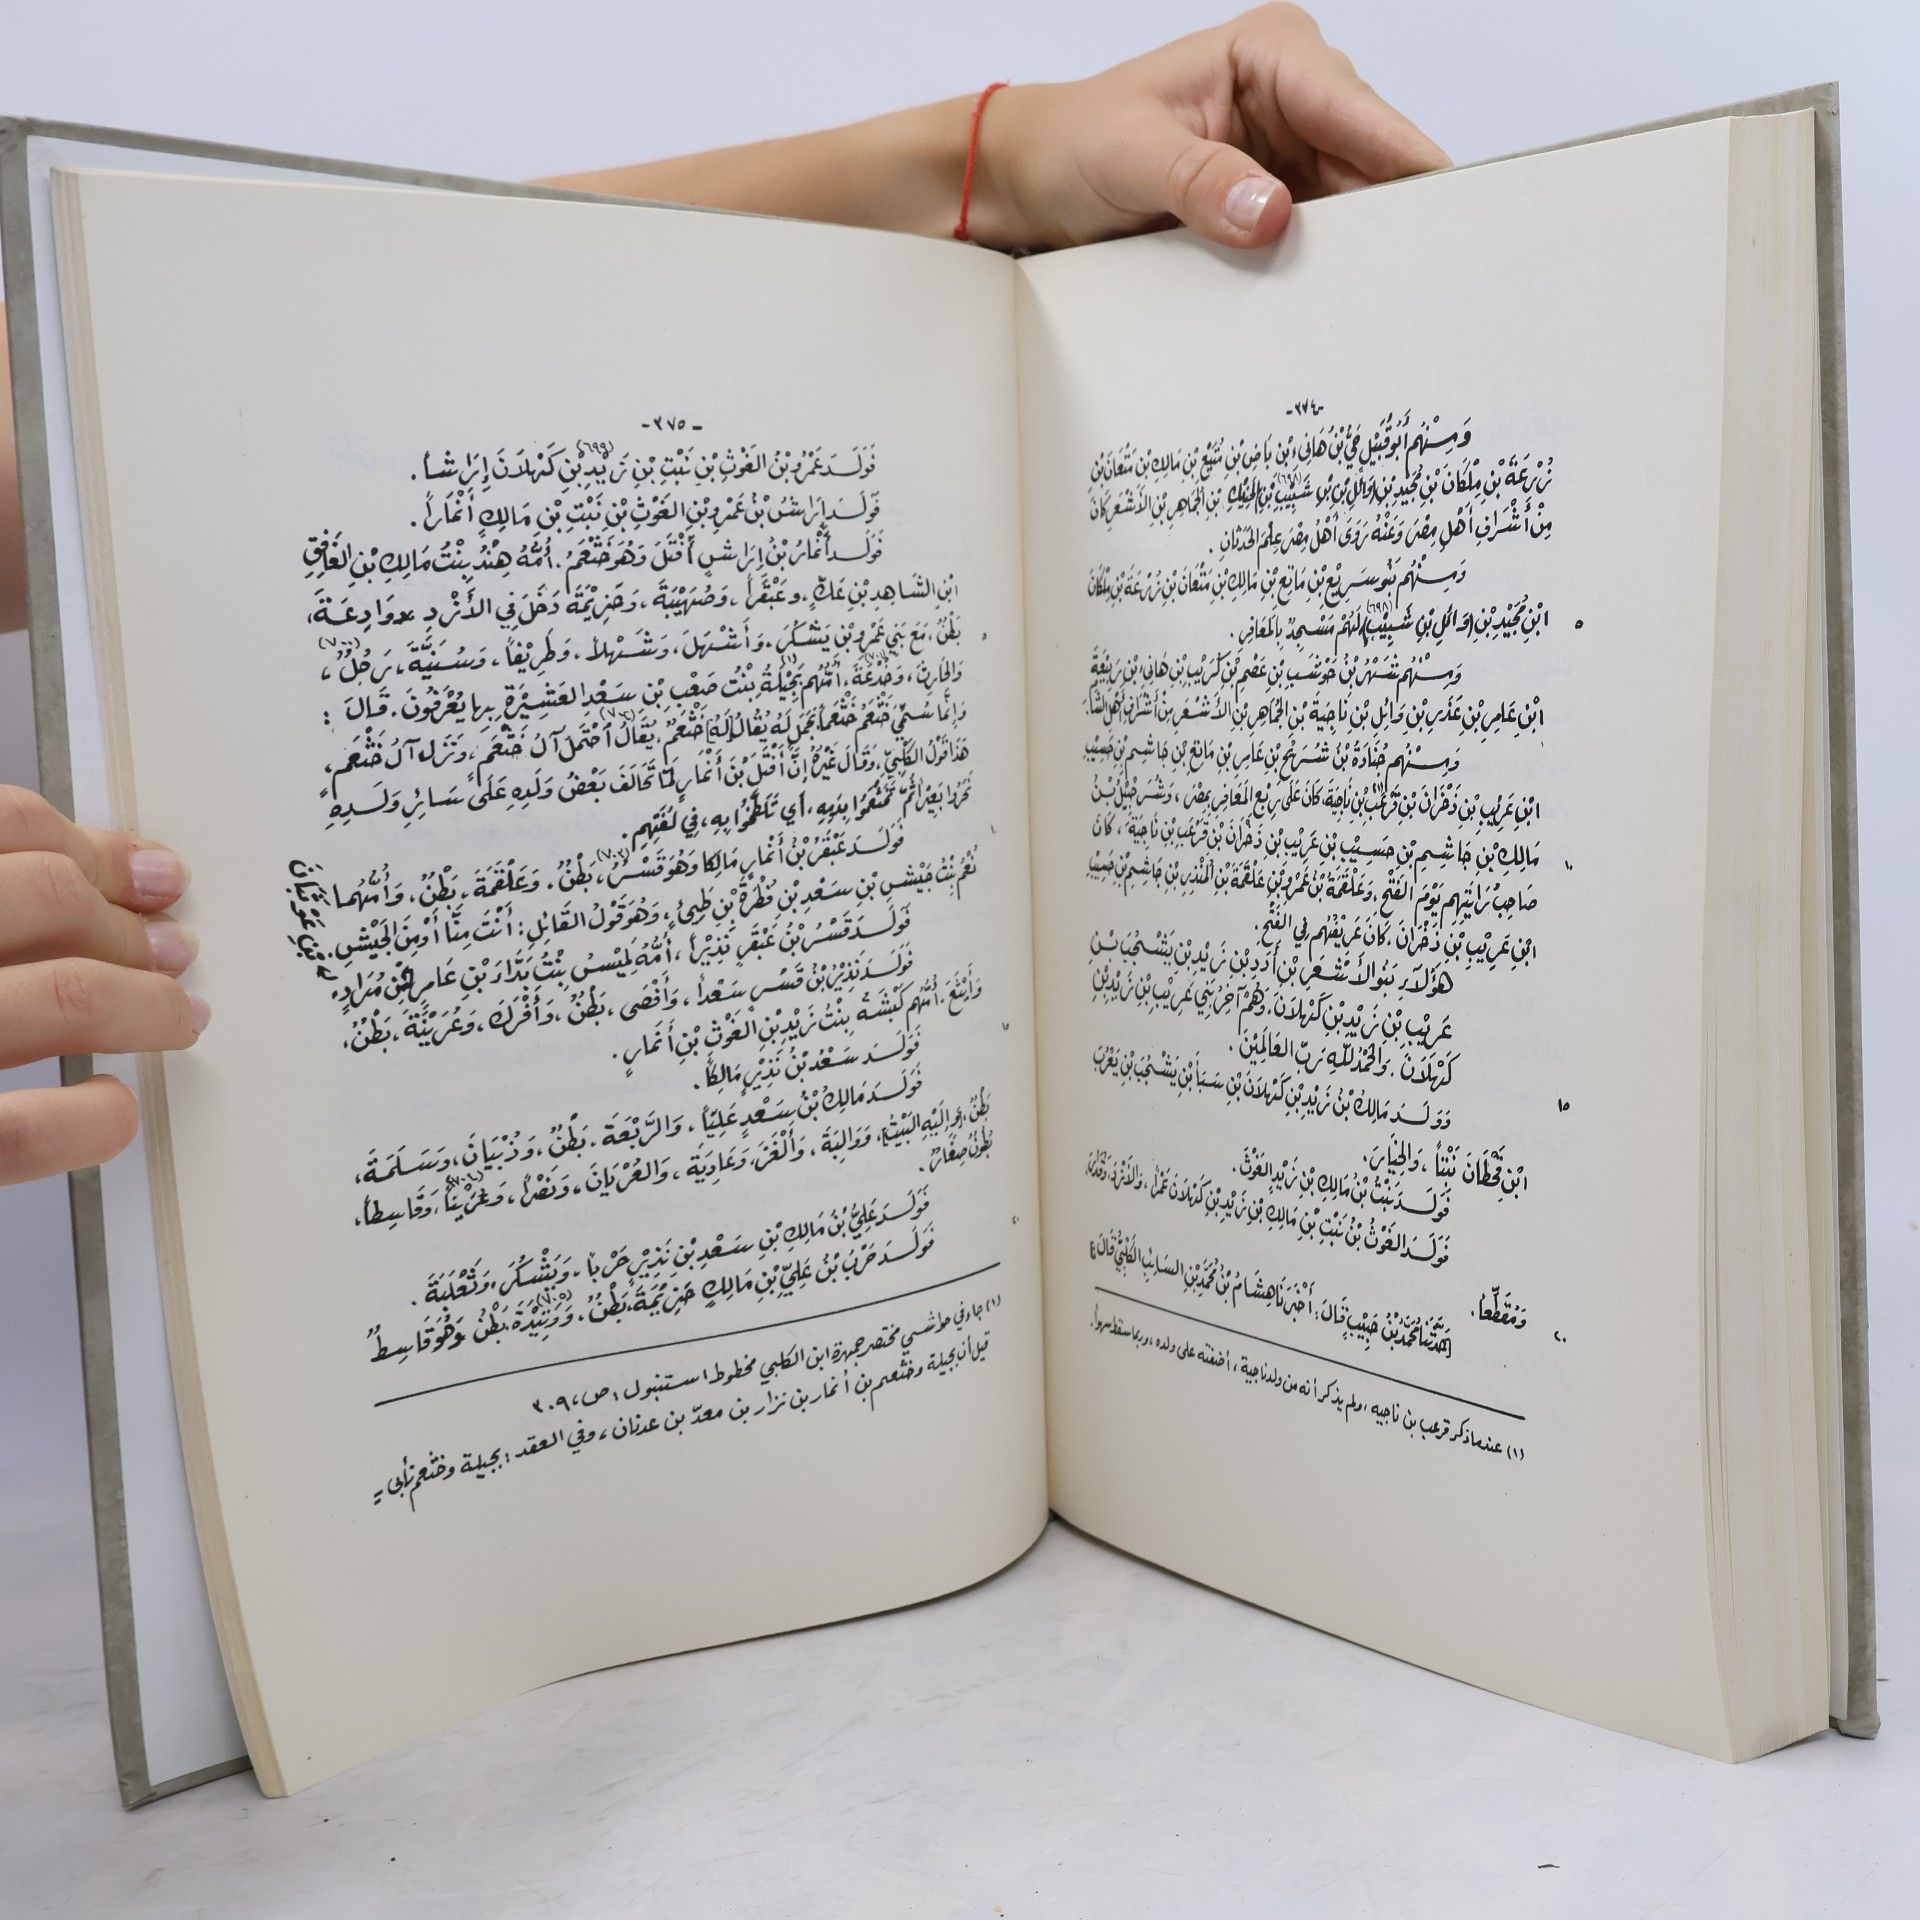 -٣٧٤-
وَمِنْهُم أَبُو قَبِيْلٍ حَيُّ بْنُ هَانِىءِ بْنِ بَاضِ بْنِ مُنَيْعِ بْنِ مَالِكِ بْنِ مَتْعَانَ بْنِ
زُرْعَةَ بْنِ مِلْكَانَ بْنِ مُجِيْدِ بْنِ (وَائِلِ بْنِ شَبِيْبِ) (٦٩٨) بْنِ الحَنِيْكِ بْنِ الجُمَاهِرِ بْنِ الأَشْعَرِ كَانَ
مِنْ أَشْرَافِ أَهْلِ مِصْرَ وَعَنْهُ رَوَى أَهْلُ مِصْرَ عِلْمَ الحَدَثَانِ.
وَمِنْهُم بَنُو سَرِيْعِ بْنِ مَانِعِ بْنِ مَالِكِ بْنِ مَتْعَانَ بْنِ زُرْعَةَ بْنِ مِلْكَانَ
ابْنِ مُجِيْدِ بْنِ (وَائِلِ بْنِ شَبِيْبِ) (٦٩٨) لَهُمْ مَسْجِدٌ بِالمَعَافِرِ. ٥
وَمِنْهُم شَهْرُ بْنُ حَوْشَبِ بْنِ عَصْمِ بْنِ كُرَيْبِ بْنِ هَانِىءِ بْنِ رَبِيْعَةَ
ابْنِ عَامِرِ بْنِ عَذَرِ بْنِ وَائِلِ بْنِ نَاجِيَةَ بْنِ الجُمَاهِرِ بْنِ الأَشْعَرِ مِنْ أَشْرَافِ أَهْلِ الشَّا.
وَمِنْهُم جُنَادَةُ بْنُ شُرَيْحِ بْنِ عَامِرِ بْنِ مَانِعِ بْنِ جَاشِمِ بْنِ حَسِيْبِ
ابْنِ عَرِيْبِ بْنِ ذَخْرَانَ بْنِ قَرْعَبِ بْنِ نَاجِيَةَ، كَانَ عَلَى رَبْعِ المَعَافِرِ بِمِصْرَ، وَشُرَحْبِيْلُ بْنُ
مَالِكِ بْنِ جَاشِمِ بْنِ حَسِيْبِ بْنِ عَرِيْبِ بْنِ ذَخْرَانَ بْنِ قَرْعَبِ بْنِ نَاجِيَةَ، كَانَ ١٠
صَاحِبَ رَايَتِهِم يَوْمَ الفَتْحِ، وَعَلْقَمَةُ بْنُ عَمْرِو بْنِ عَلْقَمَةَ بْنِ المُنْذِرِ بْنِ جَاشِمِ بْنِ حَسِيْبِ
ابْنِ عَرِيْبِ بْنِ ذَخْرَانَ، كَانَ عَرِيْفُهُم فِي الفَتْحِ.
هَؤُلَاءِ بَنُو الأَشْعَرِ بْنِ أُدَدِ بْنِ زَيْدِ بْنِ يَشْجُبَ بْنِ
عَرِيْبِ بْنِ زَيْدِ بْنِ كَهْلَانَ، وَهُمْ آخِرُ بَنِي عَرِيْبِ بْنِ زَيْدِ بْنِ
كَهْلَانَ. وَالحَمْدُ لِلّهِ رَبِّ العَالَمِيْنَ.
وَوَلَدَ مَالِكُ بْنُ زَيْدِ بْنِ كَهْلَانَ بْنِ سَبَأَ بْنِ يَشْجُبَ بْنِ يَعْرُبَ ١٥
ابْنِ قَحْطَانَ نَبْتاً، وَالخِيَارَ.
فَوَلَدَ نَبْتُ بْنُ مَالِكِ بْنِ زَيْدٍ الغَوْثَ.
فَوَلَدَ الغَوْثُ بْنُ نَبْتِ بْنِ مَالِكِ بْنِ زَيْدِ بْنِ كَهْلَانَ عَمْراً، وَالأَزْدَ، وَقُدَارَ،
وَمُقَطِّعاً.
[حَدَّثَنَا مُحَمَّدُ بْنُ حَبِيْبٍ قَالَ: أَخْبَرَنَا هِشَامُ بْنُ مُحَمَّدِ بْنِ السَائِبِ الكَلْبِيُّ قَالَ:] ٢٠
(١) عندما ذكر قرعب بن ناجيه، ولم يذكر أنه من ولد ناجية، أضفته على ولده، وربما سقط سهواً.
-٣٧٥-
فَوَلَدَ عَمْرُو بْنُ الغَوْثِ بْنِ نَبْتِ بْنِ زَيْدِ (٦٩٩) بْنِ كَهْلَانَ إِرَاشاً.
فَوَلَدَ إِرَاشُ بْنُ عَمْرِو بْنِ الغَوْثِ بْنِ نَبْتِ بْنِ مَالِكٍ أَنْمَاراً.
فَوَلَدَ أَنْمَارُ بْنُ إِرَاشٍ أَفْتَلَ وَهُوَ خَثْعَمُ. أُمُّهُ هِنْدُ بِنْتُ مَالِكِ بْنِ الغَافِقِ
ابْنِ الشَاهِدِ بْنِ عَكٍّ، وَعَبْقَراً، وَصُهَيْبَةَ، وَخَزِيْمَةَ دَخَلَ فِي الأَزْدِ، وَوَادِعَةَ،
بَطْنٌ، مَعَ بَنِي عَمْرِو بْنِ يَشْكُرَ. وَأَشْهَلَ، وَشَهْلاً، وَطَرِيْفاً، وَسُنَيَّةَ، رَجُلٌ (٧٠٠)، ٥
وَالحَارِثَ، وَجَدْعَةَ، أُمُّهُم بَجِيْلَةُ (١) بِنْتُ صَعْبِ بْنِ سَعْدِ العَشِيْرَةِ بِهَا يُعْرَفُونَ. قَالَ:
وَإِنَّمَا سُمِّيَ خَثْعَمُ خَثْعَماً بِجَمَلٍ لَهُ يُقَالُ [لَهُ] خَثْعَمٌ، يُقَالُ احْتَمَلَ آلُ خَثْعَمٍ، وَنَزَلَ آلُ خَثْعَمٍ،
هَذَا قَوْلُ الكَلْبِيِّ، وَقَالَ غَيْرُهُ إِنَّ أَفْتَلَ بْنَ أَنْمَارٍ لَمَّا تَحَالَفَ بَعْضُ وَلَدِهِ عَلَى سَائِرِ وَلَدِهِ
نَحَرُوا بَعِيْراً ثُمَّ تَخَثْعَمُوا بِدَمِهِ، أَي تَلَطَّخُوا بِهِ، فِي لُغَتِهِم.
فَوَلَدَ عَبْقَرُ بْنُ أَنْمَارٍ مَالِكاً وَهُوَ قَسْرٌ (٧٠٣)، بَطْنٌ. وَعَلْقَمَةَ، بَطْنٌ، وَأُمُّهُمَا ١٠
نُعْمُ بِنْتُ جَيْشِ بْنِ سَعْدِ بْنِ فُطْرَةَ بْنِ طَيِّىءٍ، وَهُوَ قَوْلُ القَائِلِ: أَنْتَ مِنَّا أَوْ مِنَ الجَيْشِ.
فَوَلَدَ قَسْرُ بْنُ عَبْقَرٍ نَذِيْراً، أُمُّهُ لَمِيْسُ بِنْتُ بَدَّاءَ بْنِ عَامِرِ بْنِ مُرَادٍ.
بْنِ عَوْثَبَانَ
فَوَلَدَ نَذِيْرُ بْنُ قَسْرٍ سَعْداً، وَأَقْصَى، بَطْنٌ، وَأَفْرَكَ، وَعُرَيْنَةَ، بَطْنٌ،
وَأَيْتَعَ. أُمُّهُم كَبْشَةُ بِنْتُ زَيْدِ بْنِ الغَوْثِ بْنِ أَنْمَارٍ.
فَوَلَدَ سَعْدُ بْنُ نَذِيْرٍ مَالِكاً. ١٥
فَوَلَدَ مَالِكُ بْنُ سَعْدٍ عَلِيّاً، وَالرَّبْعَةَ. بَطْنٌ، وَذُبْيَانَ، وَسَلَمَةَ،
بَطْنٌ، [وَإِلَيْهِ البَيْتُ]، وَوَالِبَةَ، وَأَلْغَزَ، وَعَادِيَةَ، وَالعُرْيَانَ، وَنَصْراً، وَعُرَيْناً (٧٠٤)، وَقَاسِطاً،
بُطُونٌ صِغَارٌ.
فَوَلَدَ عَلِيُّ بْنُ مَالِكِ بْنِ سَعْدِ بْنِ نَذِيْرٍ حَرْباً، وَيَشْكُرَ، وَثَعْلَبَةَ.
فَوَلَدَ حَرْبُ بْنُ عَلِيِّ بْنِ مَالِكٍ خَزِيْمَةَ، بَطْنٌ، وَوَتِيْدَةَ (٧٠٥)، بَطْنٌ، وَهُوَ قَاسِطٌ ٢٠
(١) جاء في حواشي مختصر جمهرة ابن الكلبي مخطوط استنبول: ص، ٣٠٩
قيل أن بجيلة وخثعم بن أنمار بن نزار بن معدّ بن عدنان، وفي العقد: بجيلة وخثعم تأبى =